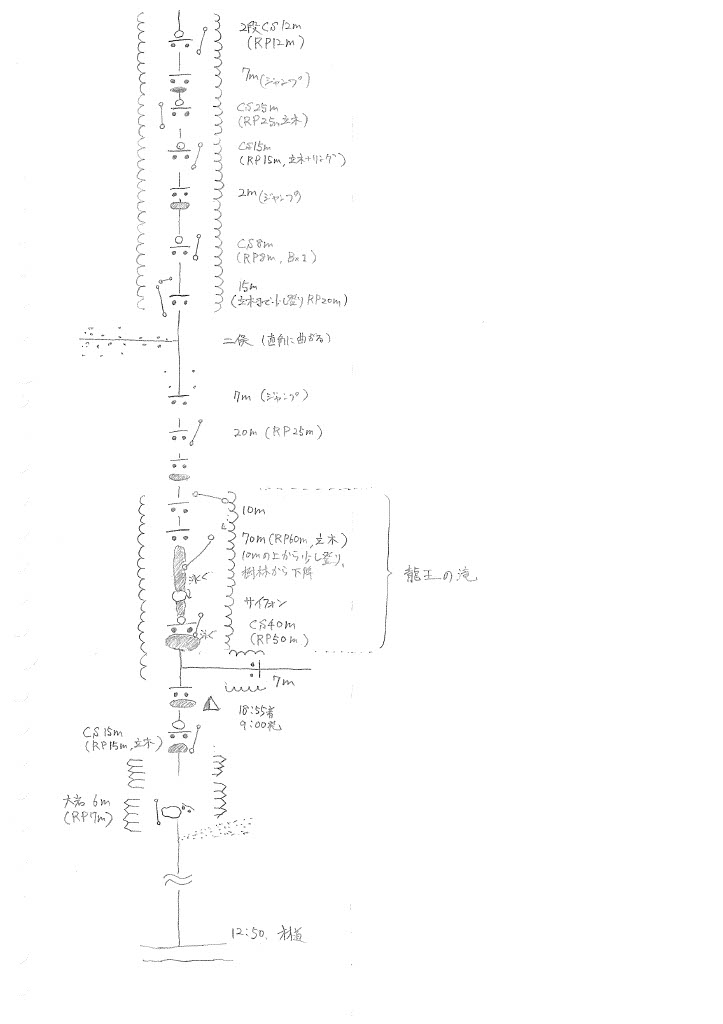 2段CS12m
(RP12m)
7m(ジャンプ)
CS25m
(RP25m,立木)
CS15m
(RP15m,立木+リング)
2m(ジャンプ)
CS8m
(RP8m, B×1)
15m
(立木まで少し登りRP20m)
二俣 (直角に曲がる)
7m (ジャンプ)
20m (RP25m)
10m
70m(RP60m,立木)
10mの上から少し登り、
樹林から下降
泳ぐ
サイフォン
CS40m
(RP50m)
泳ぐ
龍王の滝
7m
18:55着
9:00発
CS15m
(RP15m,立木)
大岩 6m
(RP7m)
12:50. 林道